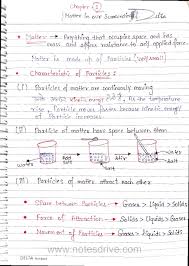 Chapter 1
Matter in our Surrounding
Matter → Anything that occupies space and has
mass and offers resistance to any applied force.
Matter is made up of Particles (very small)
Characteristic of Particles :
(I) Particles of matter are continuously moving
kinetic energy As the temperature
rise, Particle moves faster because kinetic energy
of Particle increases
(II) Particle of matter have space between them
Water
Add
Salt
(III) Particles of matter attract each other
Space between Particles → Gases > Liquid > Solids
Force of Attraction → Solids > Liquids > Gases
Movement of Particles → Gases > Liquids > Solids
www.notesdrive.com